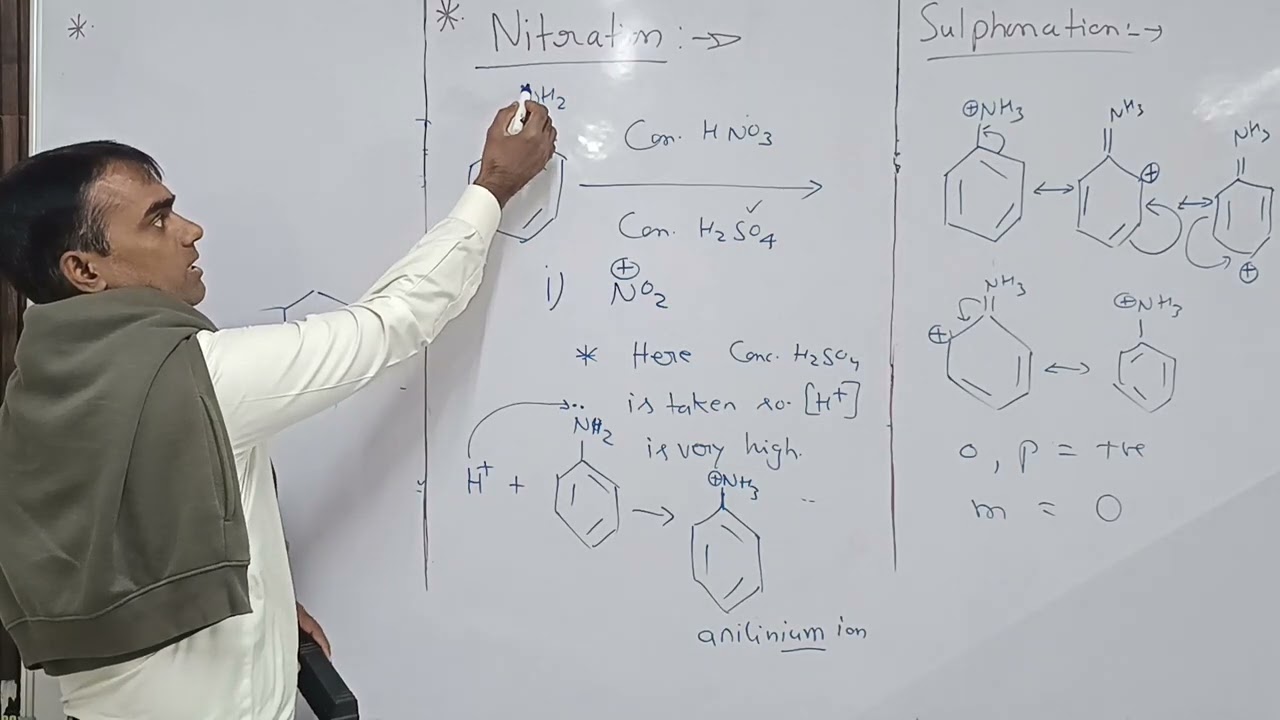 *.
*. Nitration :→
NH2
Con. HNO3
Con. H2SO4
i) ⊕NO2
* Here Conc. H2SO4
is taken so. [H+]
is very high.
NH2
H+ +
→
⊕NH3
anilinium ion
Sulphonation:→
⊕NH3
NH3
⊕
NH3
⊕
NH3
⊕
⊕NH3
o, p = +ve
m = O